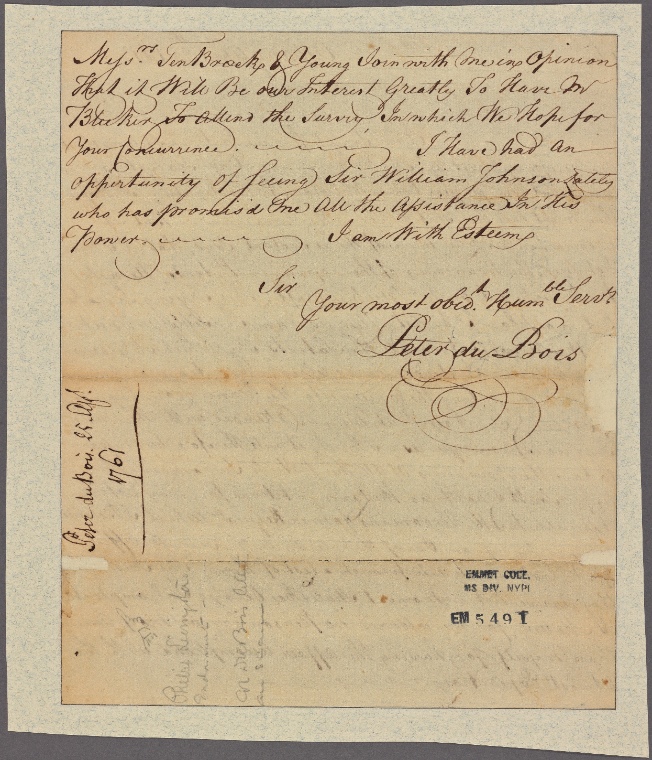 Messrs. TenBroek & Young Join with me in Opinion
that it Will Be our Interest Greatly To Have Mr
Bleeker To Attend the Survey, In which We Hope for
Your Concurrence. I Have had an
oppertunity of Seeing Sir William Johnson Lately
who has promisd me All the Assistance In His
Power. I am With Esteem
Sir
Your most obedt. Humble Servt.
Peter du Bois
Peter du Bois. 25 Augt.
1761
EMMET COLL.
MS DIV. NYPL
EM 5491